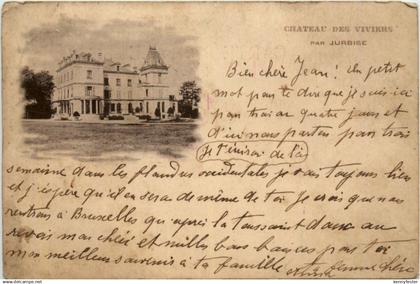 CHATEAU DES VIVIERS
PAR JURBISE
Bien chère Jean! Un petit
mot pour te dire que je suis ici
pour trois ou quatre jours et
d'ici nous partons pour trois
Je t'écrirai de là
semaine dans les flandres occidentales je vais toujours bien
et j'espère qu'il en sera de même de toi Je crois que nous
rentrons à Bruxelles qu'après la toussaint donc au
revoir ma chère et milles bons baisers pour toi
mon meilleurs souvenirs à ta famille